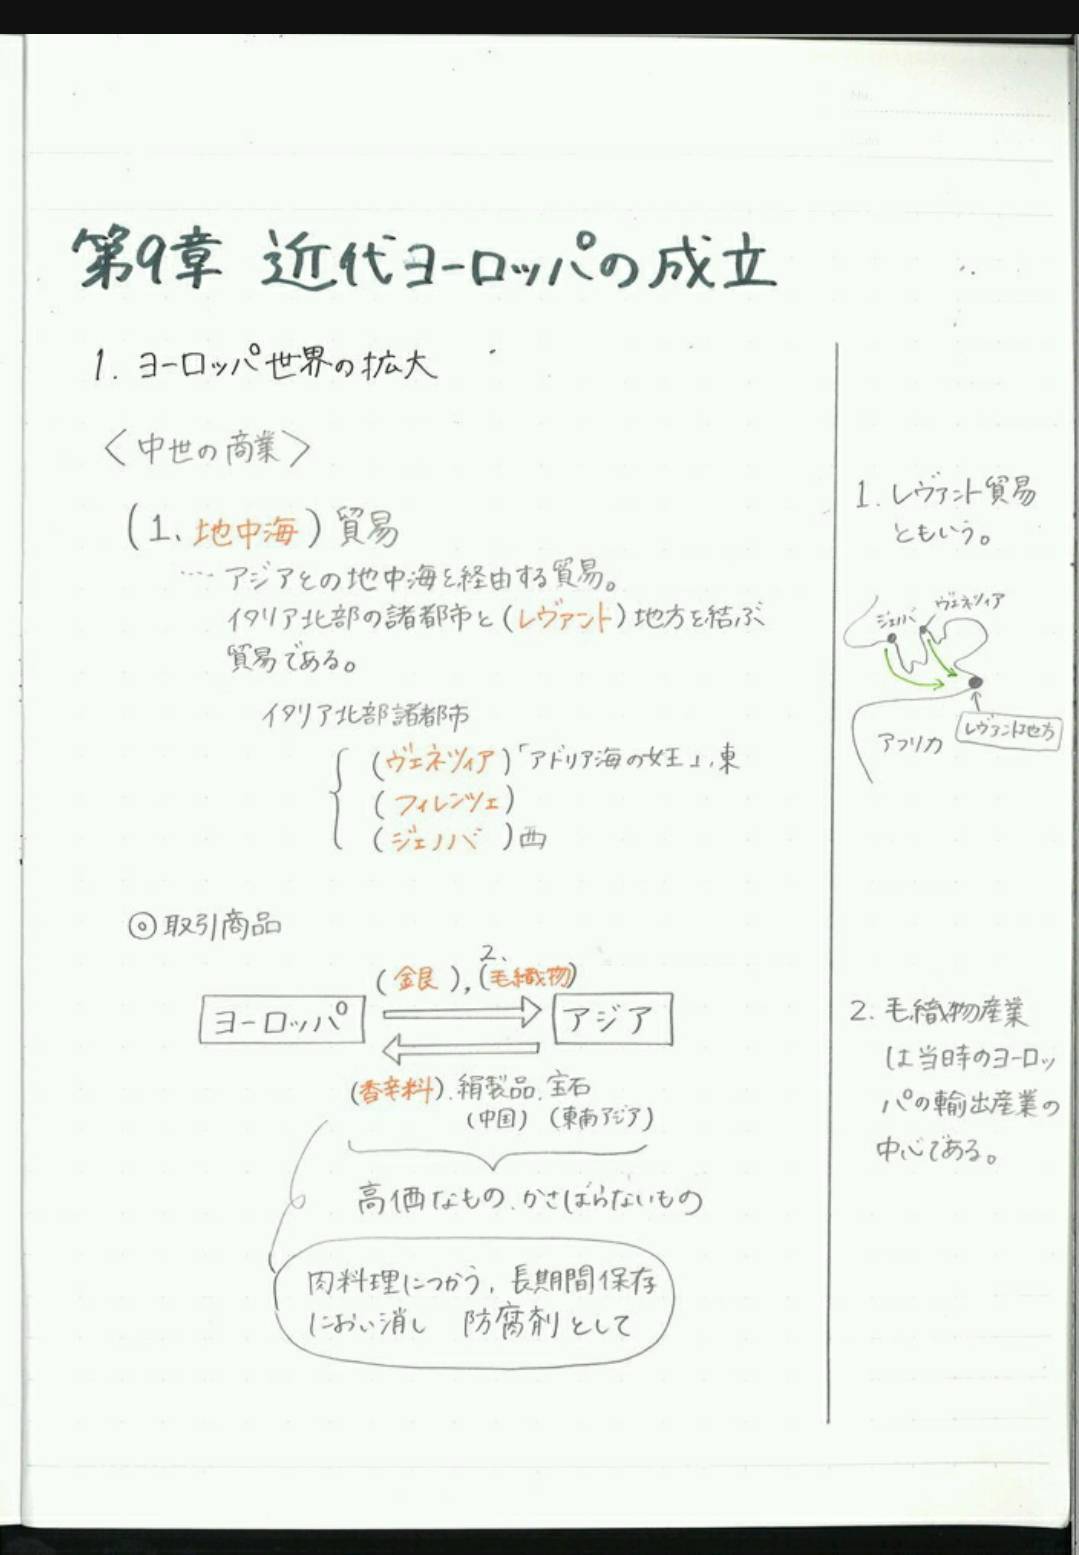 第9章 近代ヨーロッパの成立
1. ヨーロッパ世界の拡大
〈中世の商業〉
(1、地中海)貿易
…アジアとの地中海を経由する貿易。
イタリア北部の諸都市と(レヴァント)地方を結ぶ
貿易である。
イタリア北部諸都市
(ヴェネツィア)「アドリア海の女王」、東
(フィレンツェ)
(ジェノバ)西
◎取引商品
2、
(金艮),(毛織物)
ヨーロッパ
アジア
(香辛料)、絹製品、宝石
(中国) (東南アジア)
高価なもの、かさばらないもの
肉料理につかう, 長期間保存
におい消し 防腐剤として
1. レヴァント貿易
ともいう。
ジェノバ ヴェネツィア
レヴァント地方
アフリカ
2. 毛織物産業
は当時のヨーロッ
パの輸出産業の
中心である。